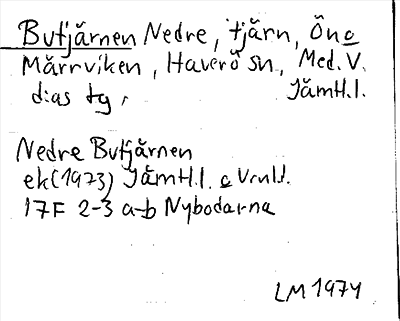 Butjärnen Nedre, tjärn, Öno
Märrviken, Haverö sn, Med. V.
dias tg, Jämtl.l.
Nedre Butjärnen
ek (1973) Jämtl.l. o Vrnl.l.
17F 2-3 a-b Nybodarna
LM 1974